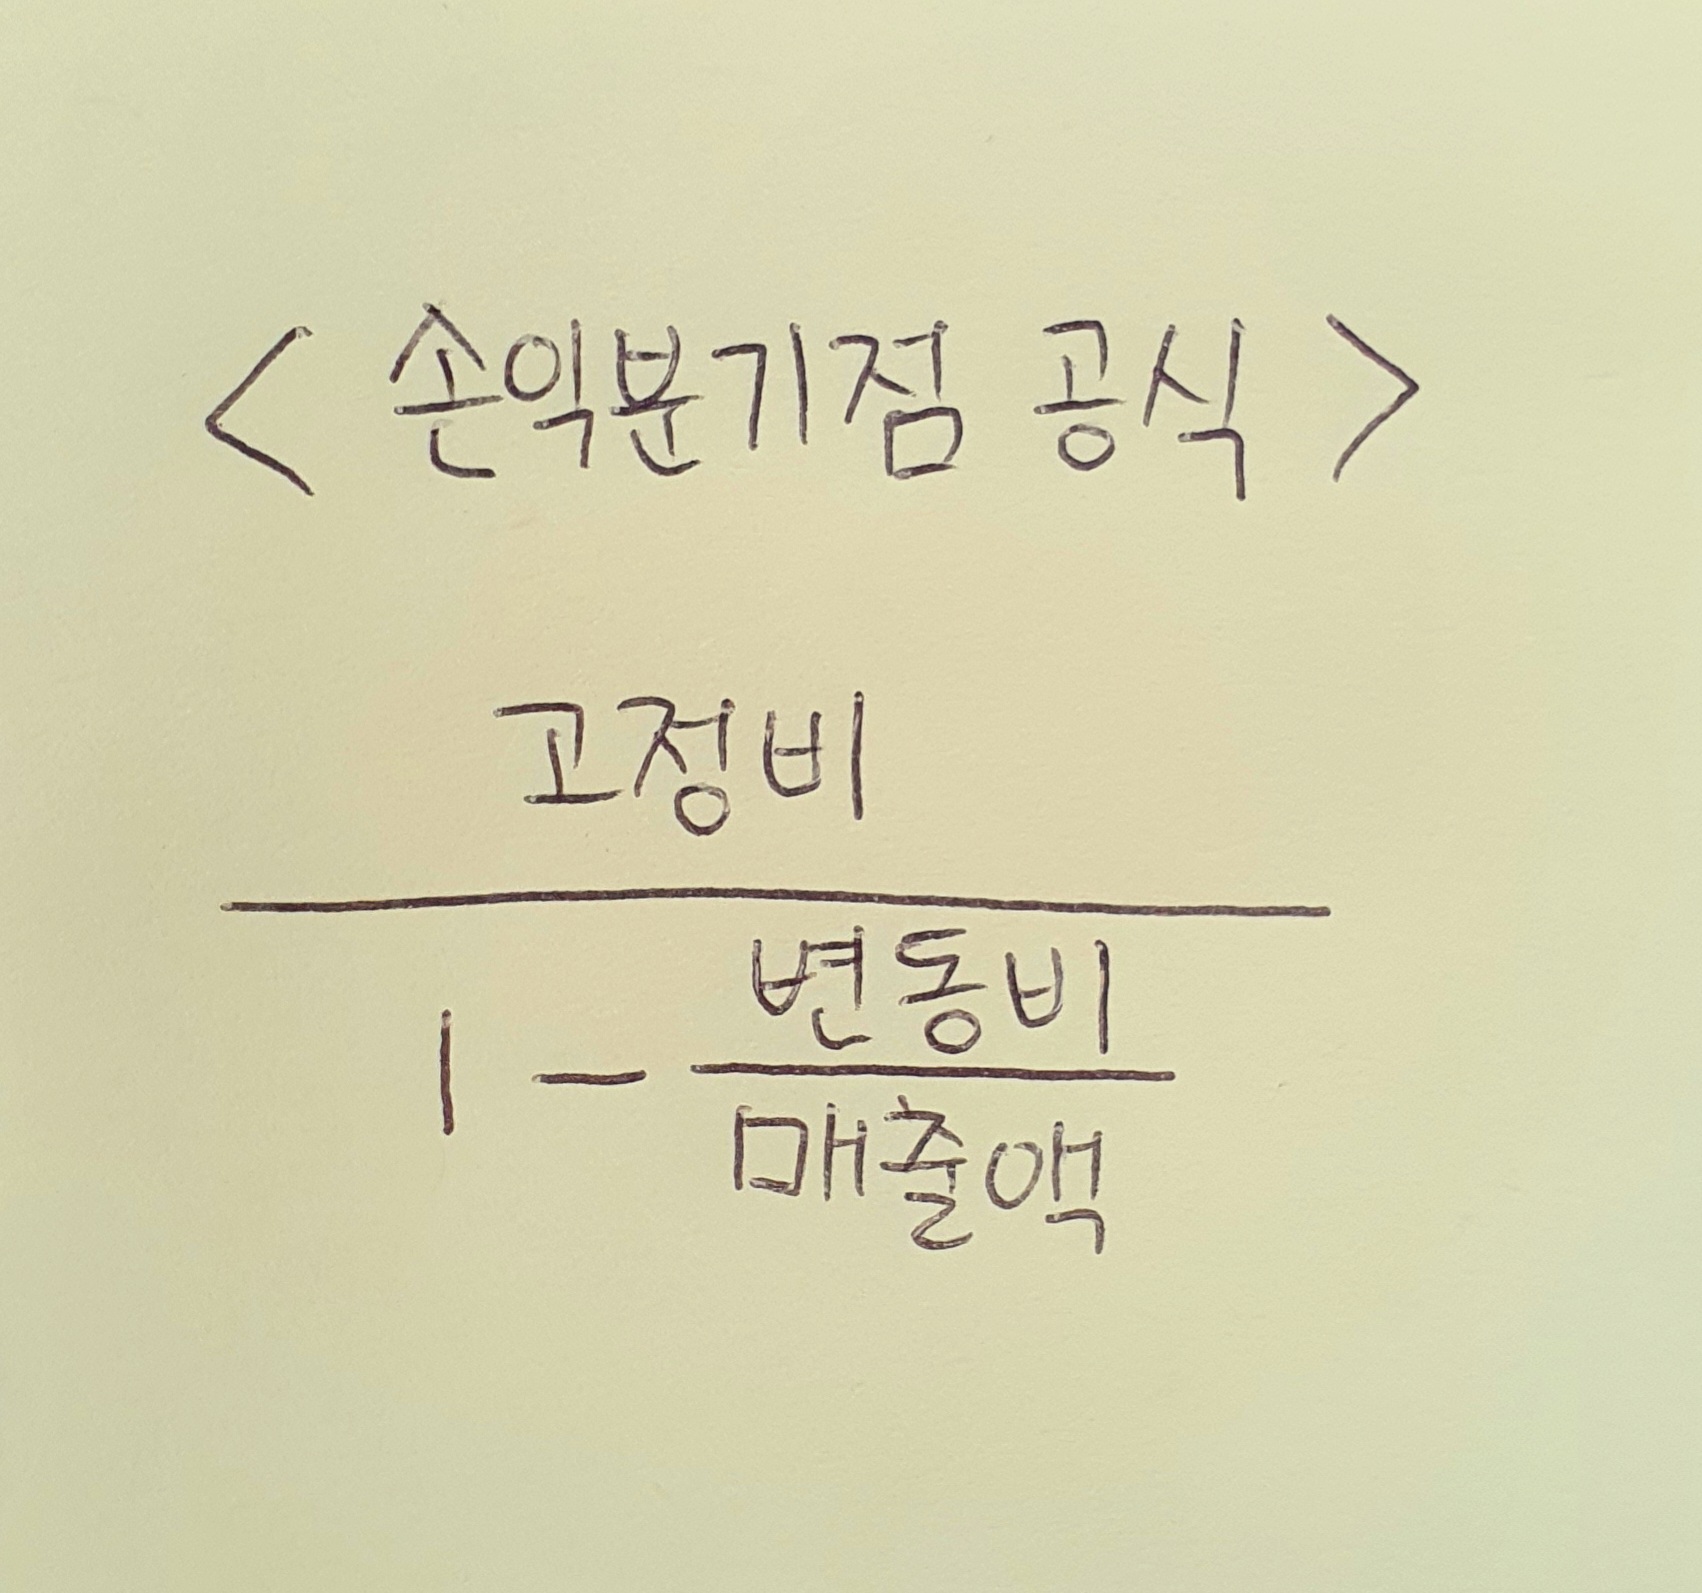 < 손익분기점 공식 >
고정비
1 - 변동비
매출액